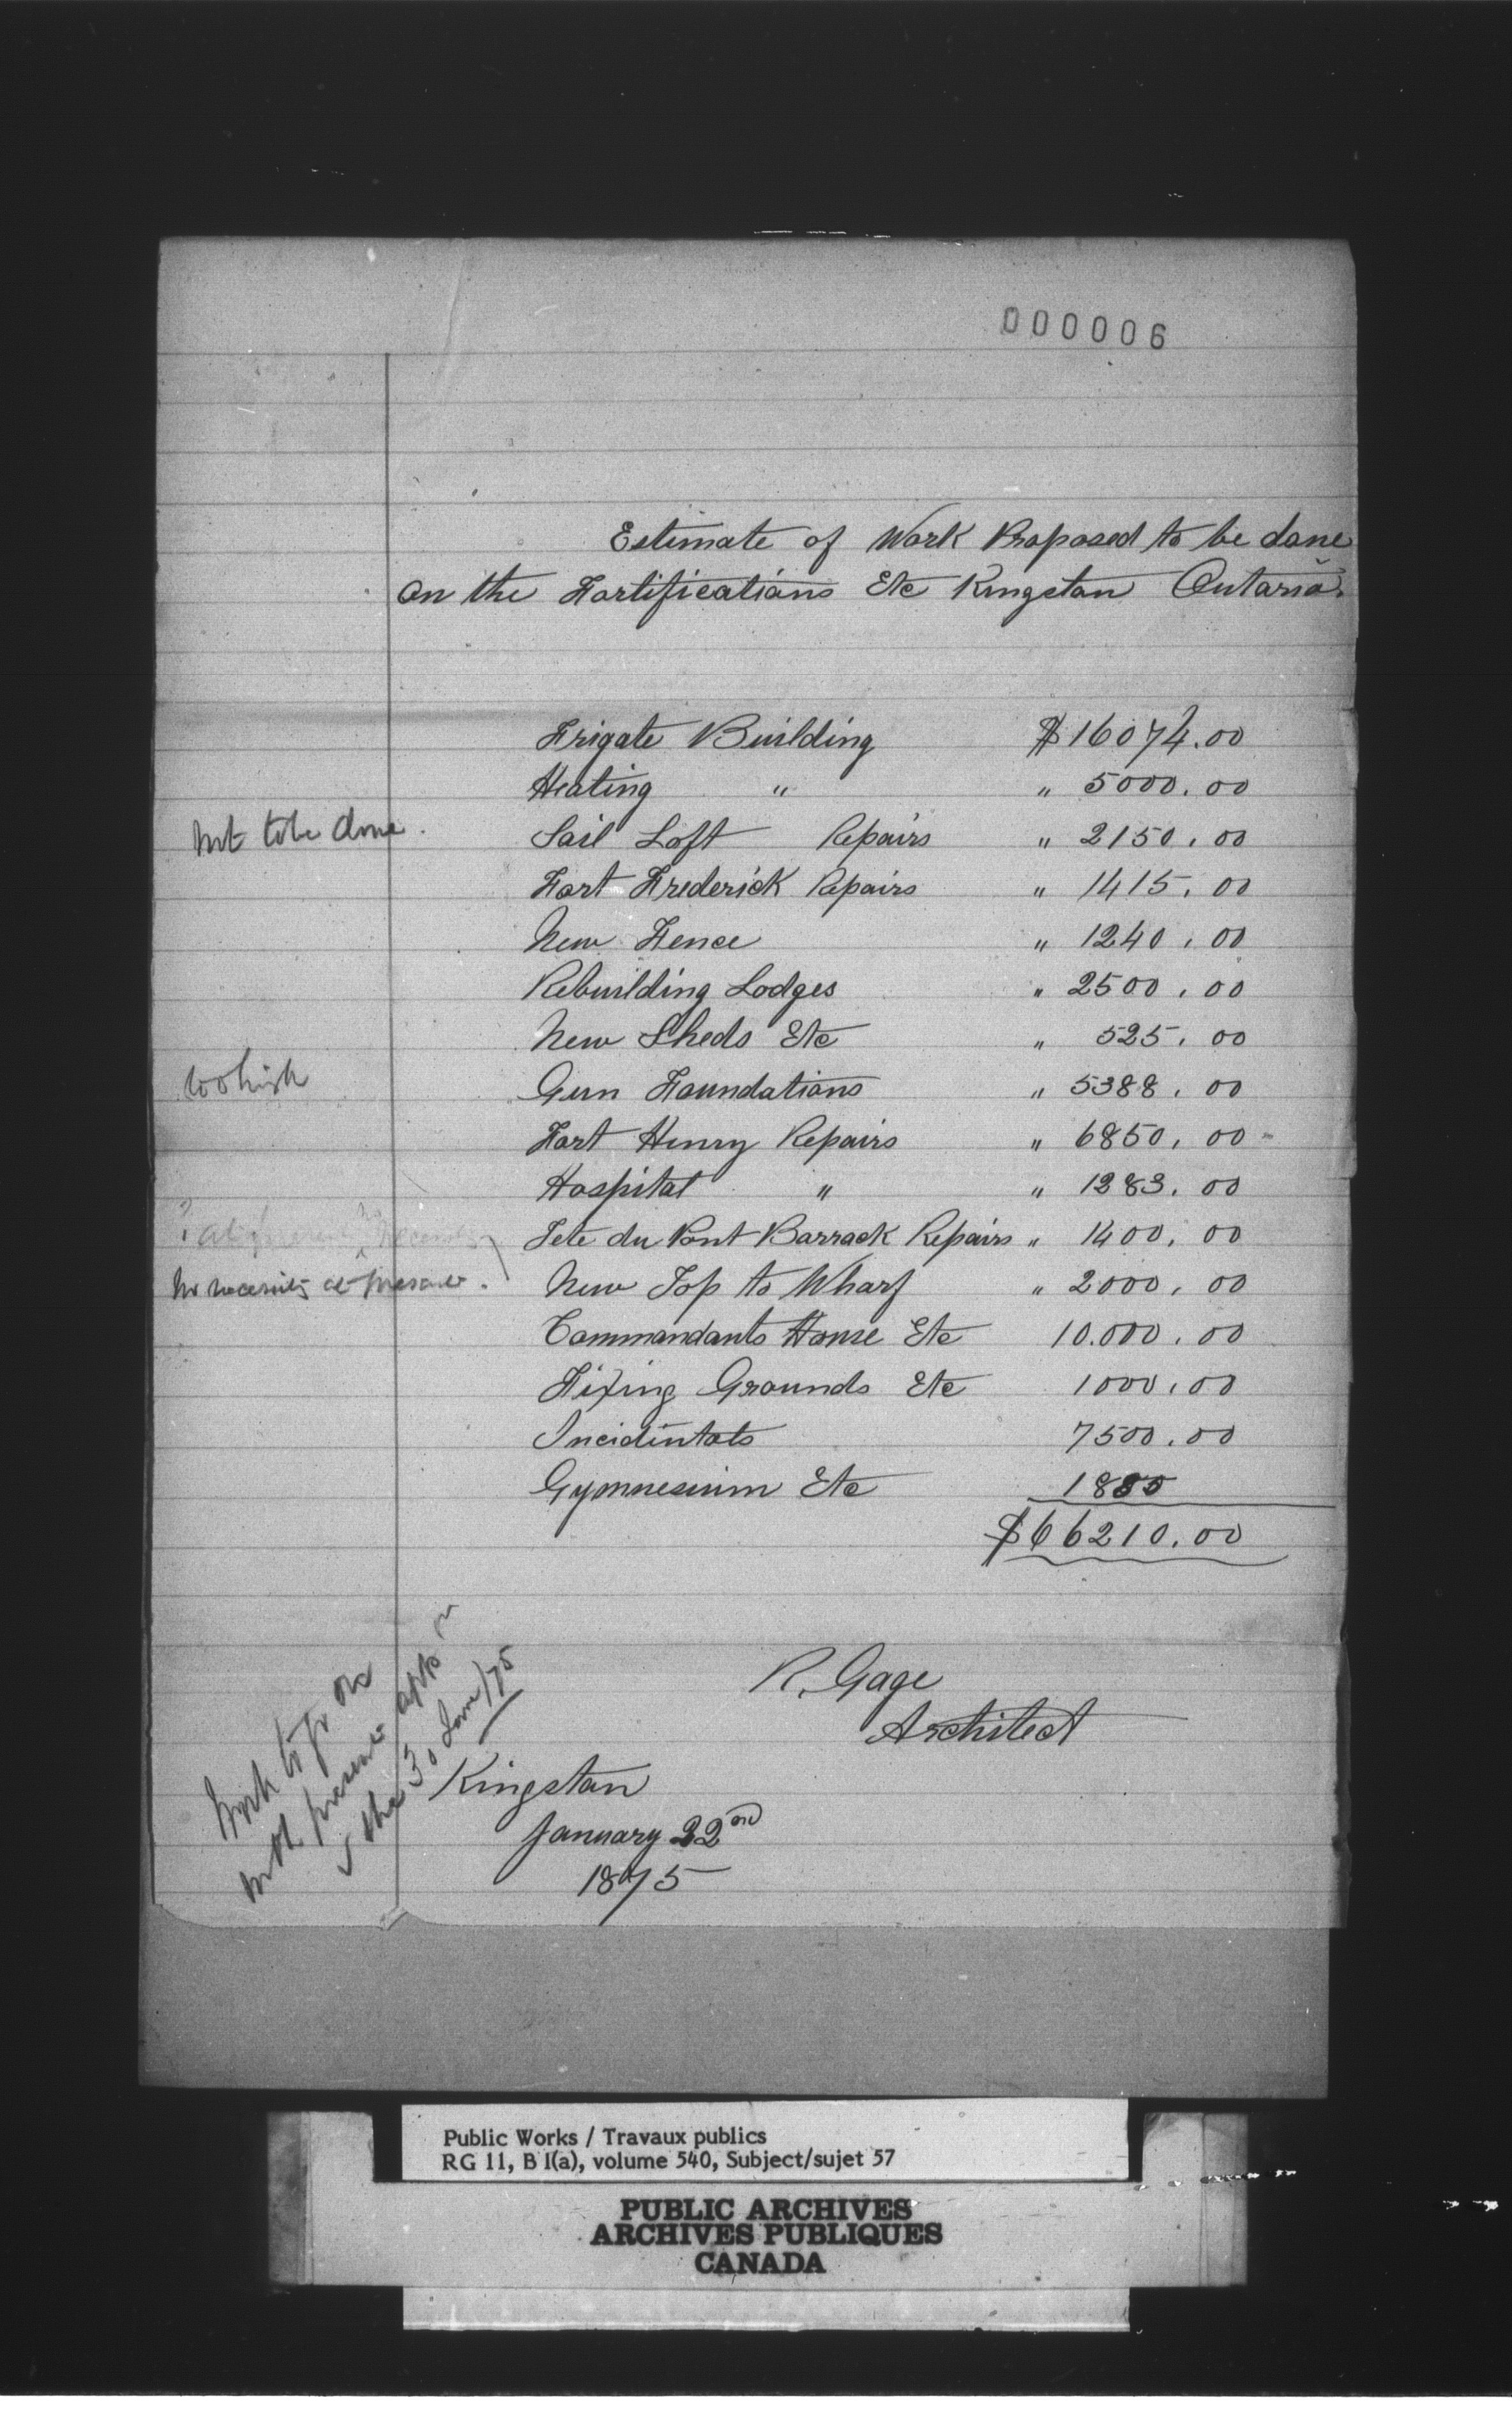 000006
Estimate of Work Proposed to be done
on the Fortifications Etc Kingston Ontario.
Frigate Building $16074.00
Heating " " 5000.00
Not to be done. Sail Loft Repairs " 2150.00
Fort Frederick Repairs " 1415.00
New Fence " 1240.00
Rebuilding Lodges " 2500.00
New Sheds Etc " 525.00
too high Gun Foundations " 5388.00
Fort Henry Repairs " 6850.00
Hospital " " 1283.00
Tete du Pont Barrack Repairs " 1400.00
No necessity at present. New Top to Wharf " 2000.00
Commandants House Etc 10.000.00
Fixing Grounds Etc 1000.00
Incidintals 7500.00
Gymnesium Etc 1885
$66210.00
R. Gage
Architect
Kingston
January 22nd
1875
Work to go on
with present appn
30 Jan/75
Public Works / Travaux publics
RG 11, B I(a), volume 540, Subject/sujet 57
PUBLIC ARCHIVES
ARCHIVES PUBLIQUES
CANADA